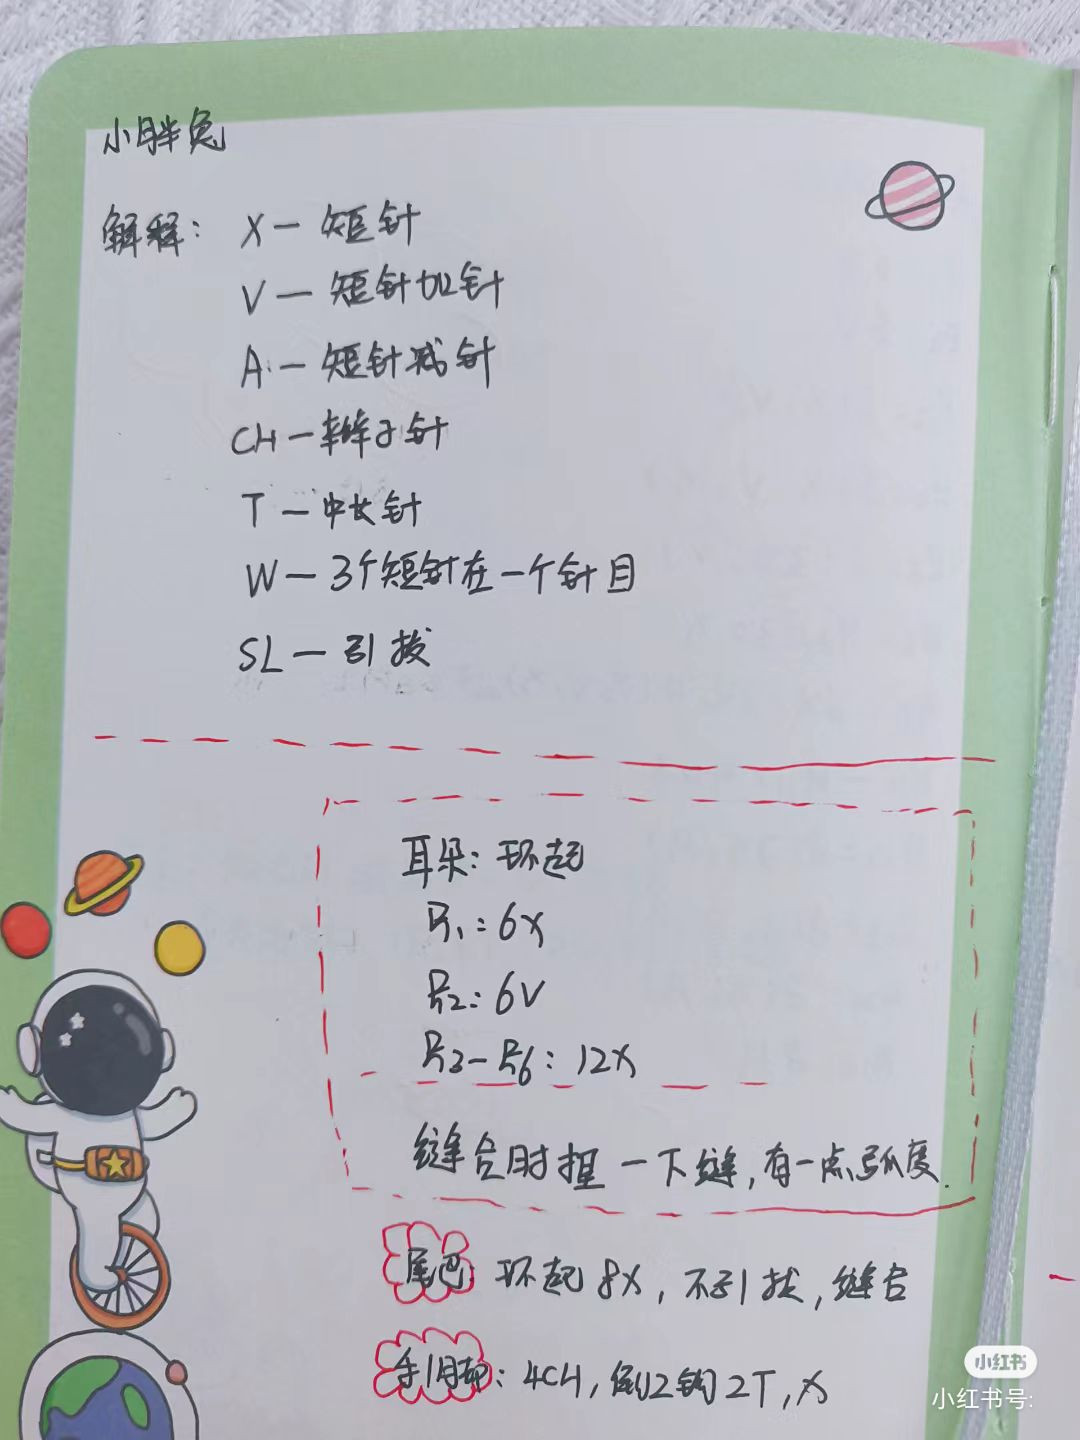 小胖兔
解释: X — 短针
V — 短针加针
A — 短针减针
CH — 辫子针
T — 中长针
W — 3个短针在一个针目
SL — 引拔
耳朵: 环起
R1: 6X
R2: 6V
R3—R6: 12X
缝合时捏一下缝,有一点弧度.
尾巴: 环起8X,不引拔,缝合
手脚: 4CH,倒2钩2T,X
小红书
小红书号: